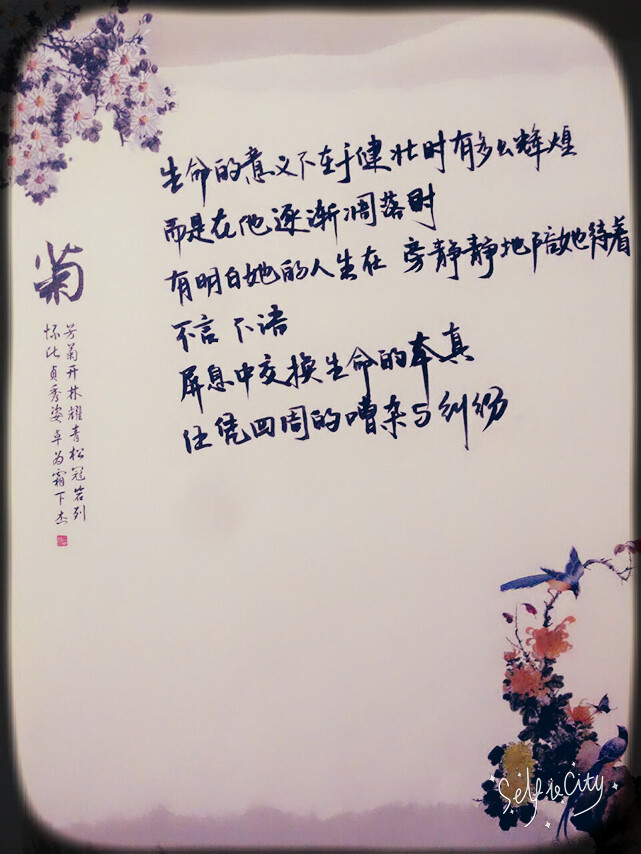 生命的意义不在于健壮时有多么辉煌
而是在他逐渐凋落时
有明白她的人坐在 旁静静地陪她待着
不言 不语
屏息中交换生命的本真
任凭四周的嘈杂与纠纷
菊
芳菊开林耀青松冠岩列
怀此贞秀姿卓为霜下杰
SelfieCity